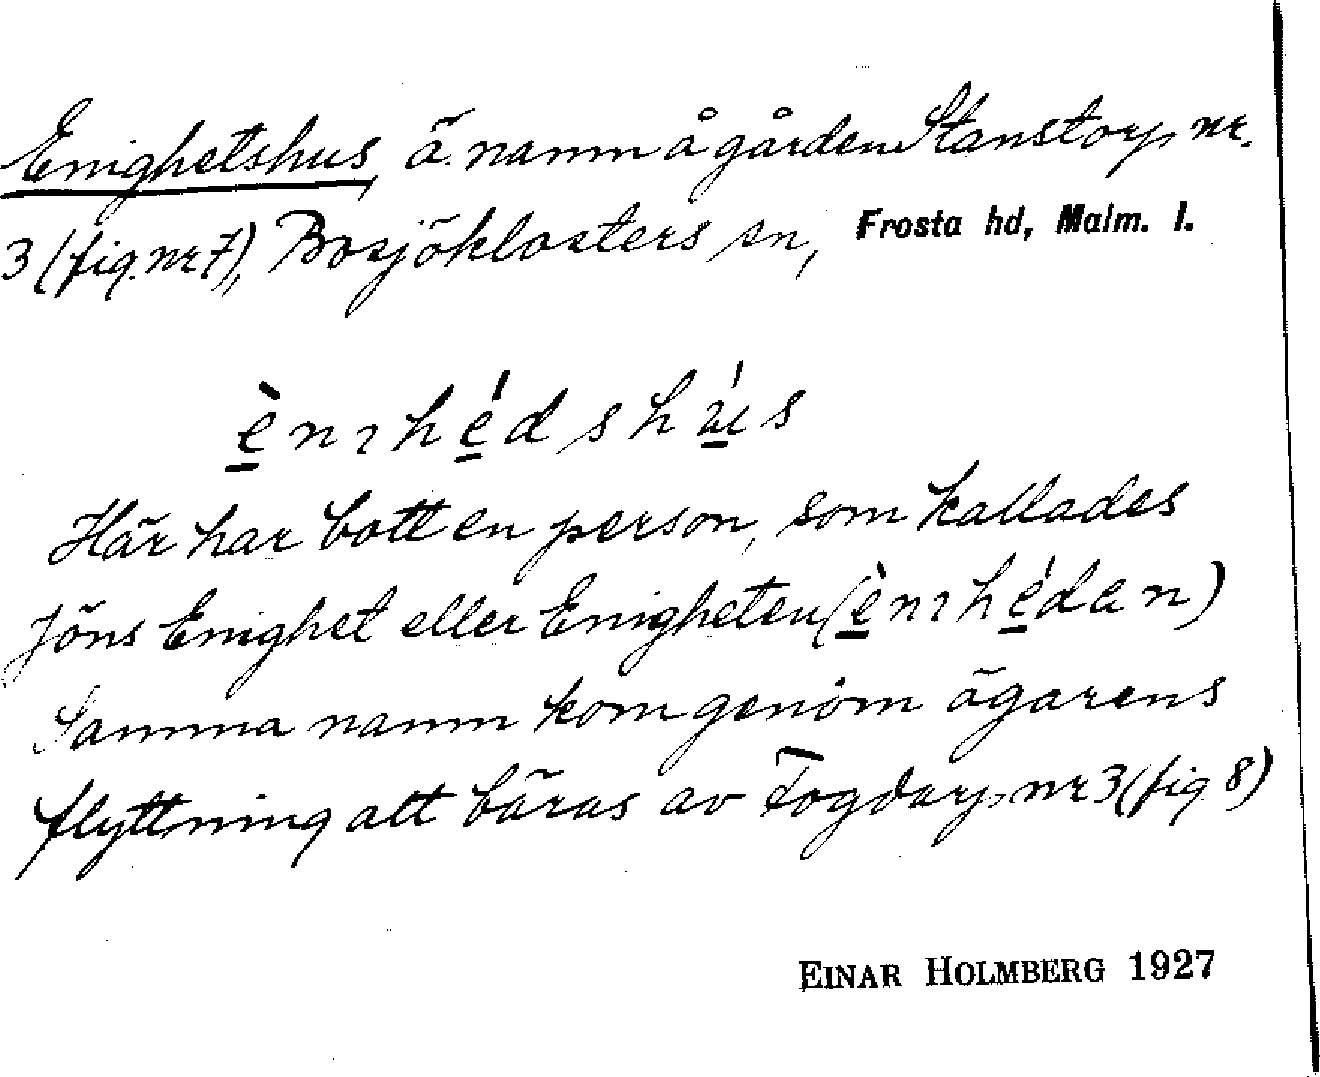 Enighetshus, ä. namn å gården Stanstorp nr.
3 (fig. nr 7), Bosjöklosters sn, Frosta hd, Malm. l.
è̲nıhé̲dshú̲s
Här har bott en person, som kallades
Jöns Enighet eller Enigheten (è̲nıhé̲dan)
Samma namn kom genom ägarens
flyttning att bäras av Fogdarp nr 3 (fig 8)
EINAR HOLMBERG 1927